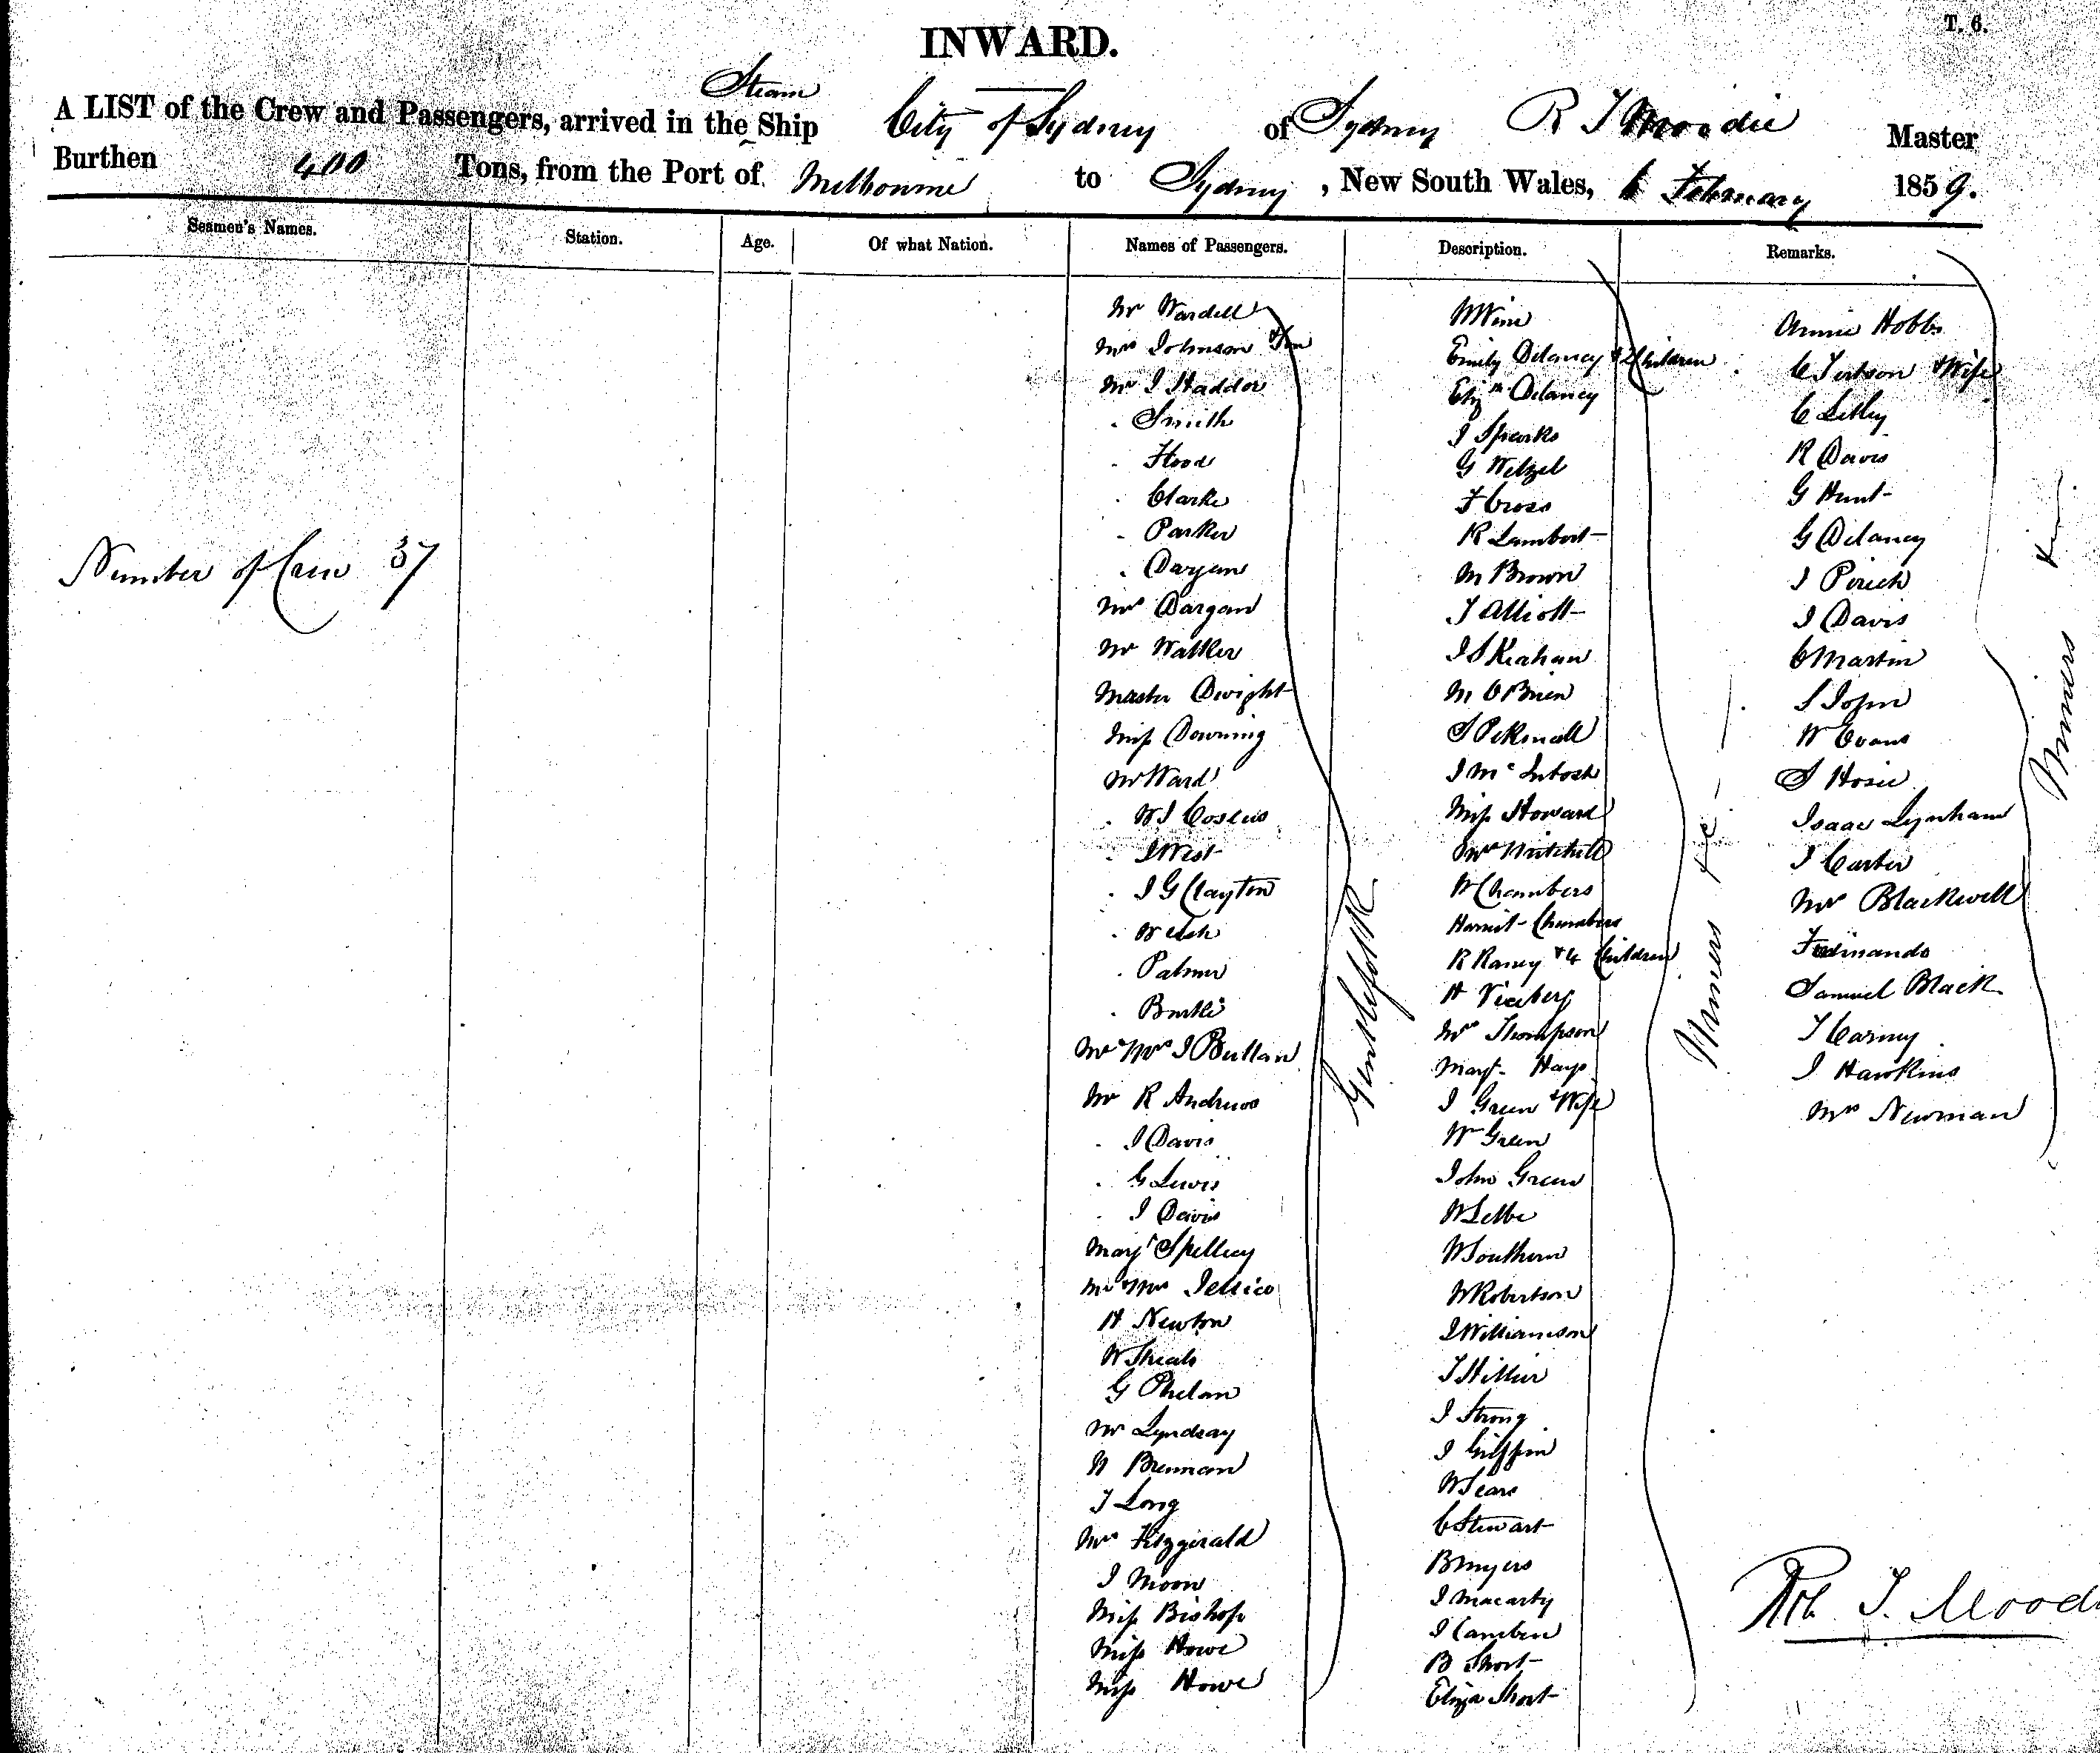 T. 6.
INWARD.
Steam
A LIST of the Crew and Passengers, arrived in the Ship City of Sydney of Sydney R T Moodie Master
Burthen 400 Tons, from the Port of Melbourne to Sydney, New South Wales, 6 February 1859.
Seamen's Names. Station. Age. Of what Nation. Names of Passengers. Description. Remarks.
Number of Crew 37
Mr Wardell
Mrs Johnson &
Mr J Haddor
. Smith
. Flood
. Clarke
. Parker
. Dargan
Mrs Dargan
Mr Walker
Master Dwight
Miss Downing
Mr Ward
. W J
. J West
. J G Clayton
. Welsh
. Palmer
. Burke
Mr & Mrs J Bullan
Mr R Andrews
. J Davis
. G Lewis
. J Davis
Margt Spelley
Mr & Mrs Jellico
H Newton
W Sheals
G Phelan
Mr Lyndsay
N Brennan
T Long
Mrs Fitzgerald
J Moon
Miss Bishop
Miss Howe
Miss Howe
Gentlefolk
W Wein
Emily Delaney & 2 Children
Elizth Delaney
J Sparks
G Welzel
F Cross
R Lambert
M Brown
T Alliott
J S Keahan
M O'Brien
S
J McIntosh
Miss Howard
Mrs Mitchell
W Chambers
Harriet Chambers
R Raney & 4 Children
H
Mrs Thompson
Margt Hays
J Green & Wife
Wm Green
John Green
W Selbe
W Southern
W Robertson
J Williamson
T Hillier
J Strong
J Griffin
W Sears
C Stewart
B Myers
J Macarty
J Camben
B Short
Eliza Short
Miners &c
Annie Hobbs
C & Wife
C Lelley
R Davis
G Hunt
G Delaney
J
J Davis
C Martin
S
W Evans
S Hosie
Isaac Lynham
J Carter
Mr Blackwell
Ferdinando
Samuel Black
T Carney
J Hawkins
Mrs Newman
Miners
Rob T. Mood